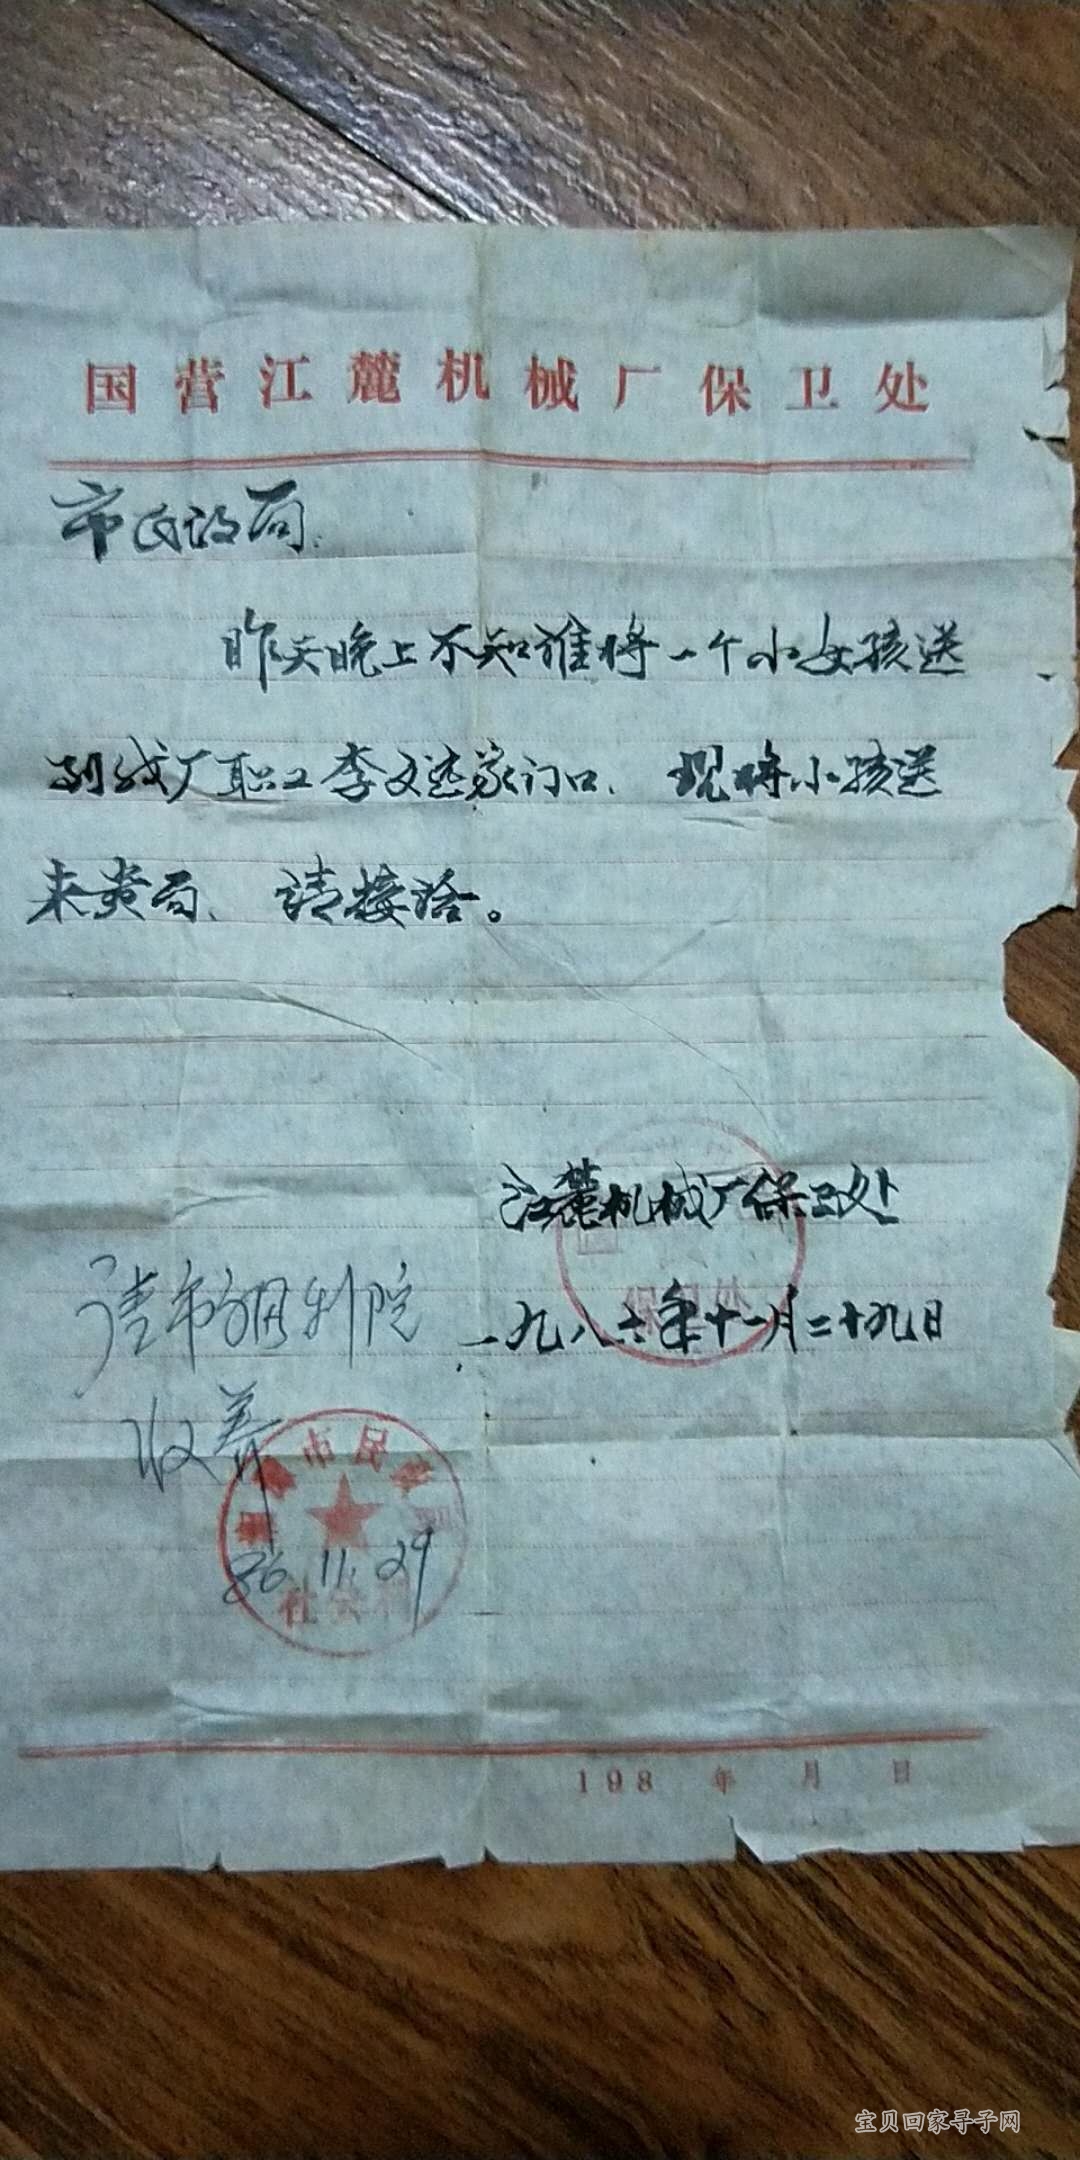 国营江麓机械厂保卫处
市民政局:
昨天晚上不知谁将一个小女孩送
到我厂职工李文选家门口、现将小孩送
来贵局、请接洽。
江麓机械厂保卫处
保卫处
一九八六年十一月二十九日
请市福利院
收养
市民
社会
86.11.29
198 年 月 日
宝贝回家寻子网